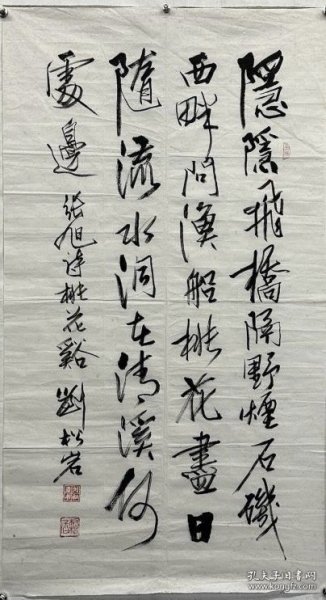 隱隱飛橋隔野煙石磯
西畔問漁船桃花盡日
隨流水洞在清溪何
處邊 張旭詩桃花谿 劉松岩
孔夫子旧书网
www.kongfz.com